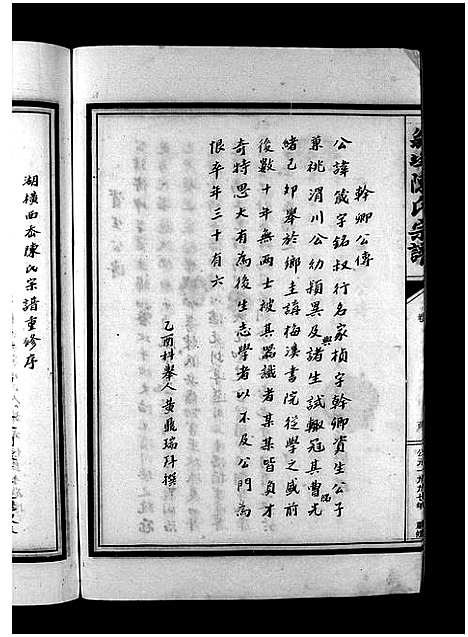 幹卿公傳
公諱箴字銘叔行名家楨字幹卿資生公子
兼祧渭川公幼穎異及與諸生試輒冠其曹光
緒己卯舉於鄉主講梅溪書院從學之盛前
後數十年無兩士被其器識者某某皆負才
奇特思大有為後生志學者以不及公門為
恨卒年三十有六
乙酉科舉人黃鼎瑞拜撰
湖橫西岙陳氏宗譜重修序
陳氏宗譜